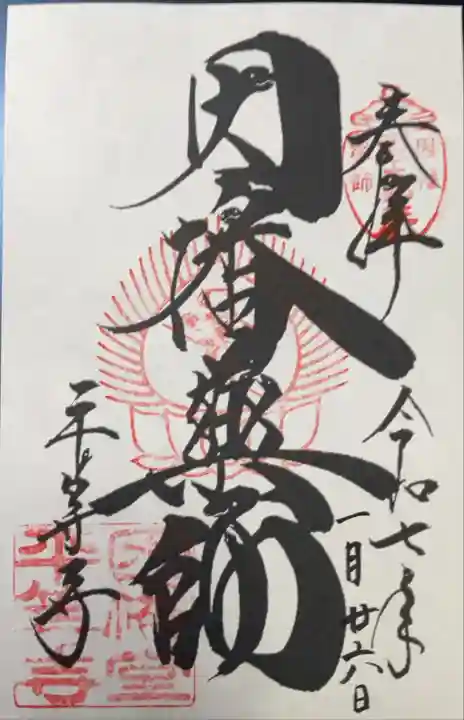 奉拝
令和七年
一月廿六日
因幡薬師
平等寺